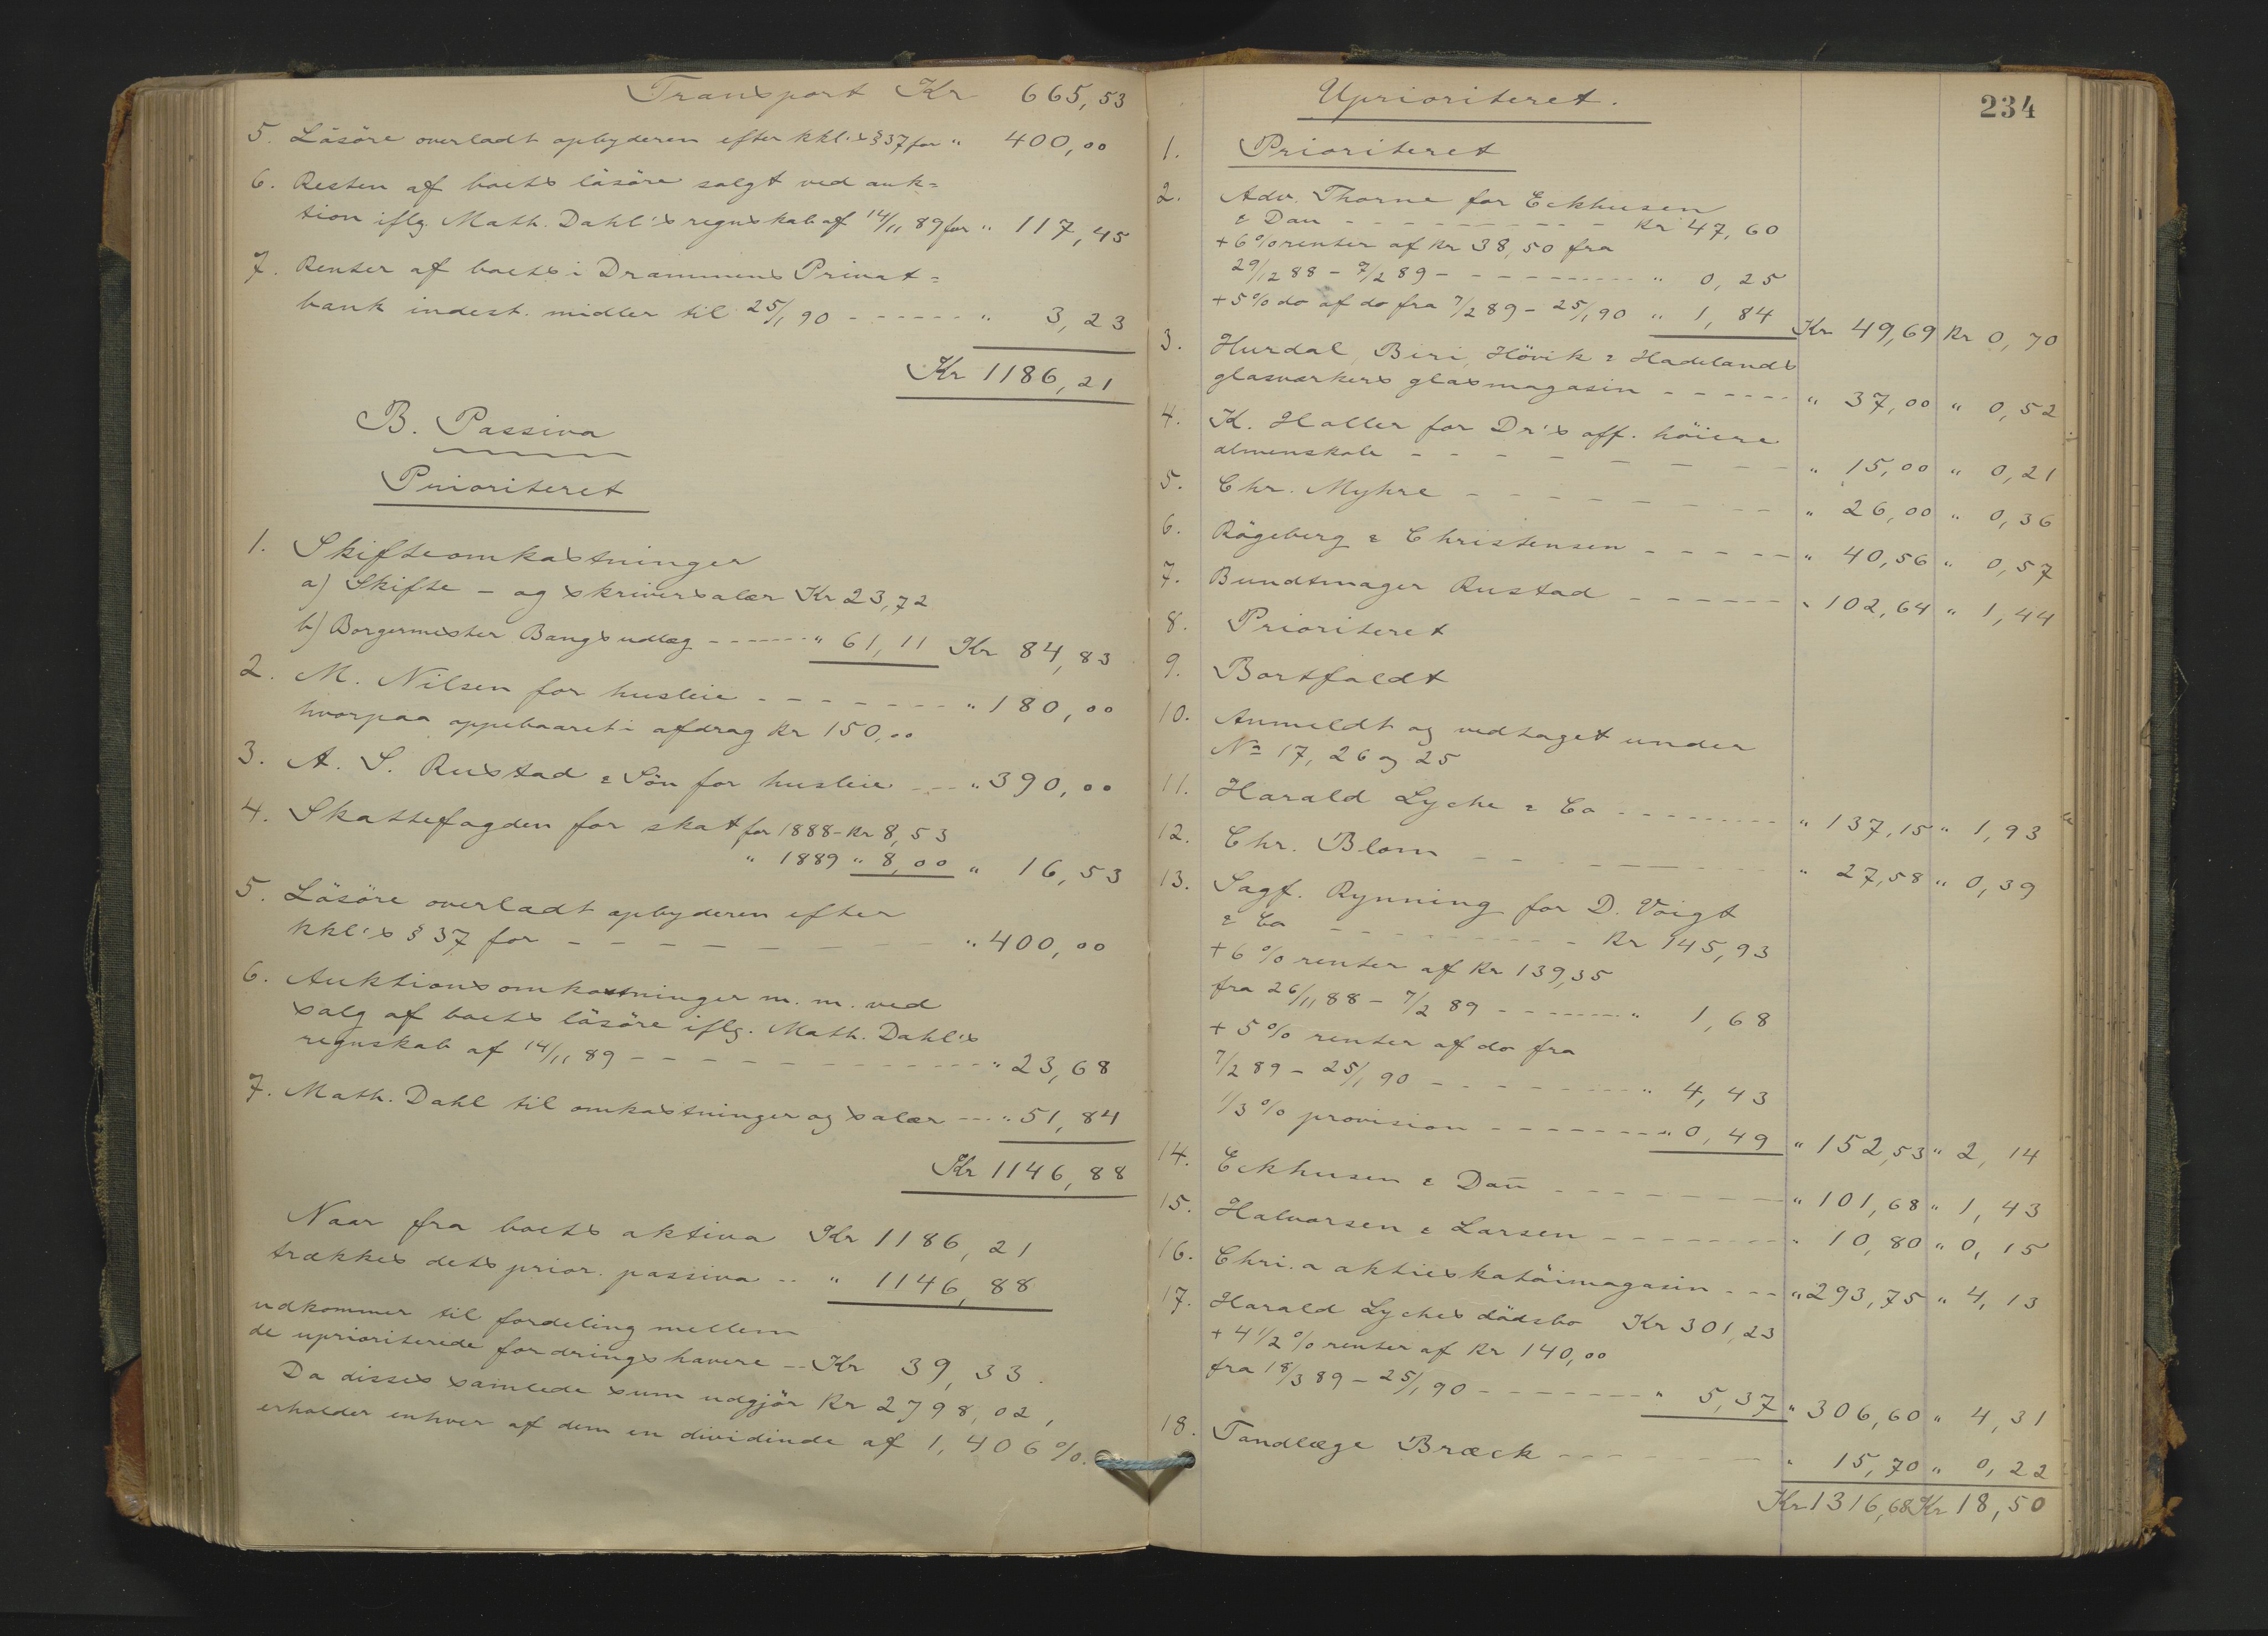 Transport Kr 665,53
5. Läsöre overladt opbyderen efter kkl's § 37 for " 400,00
6. Resten af boets läsöre solgt ved auk=
tion iflg. Math. Dahl's regnskab af 14/11 89 for " 117,45
7. Renter af boets i Drammens Privat=
bank indest. midler til 25/1 90 - - - - - - " 3,23
Kr 1186,21
B. Passiva
Prioriteret
1. Skifteomkostninger
a) Skifte - og skriversalær Kr 23,72
b) Borgermester Bangs udlæg - - - - - " 61,11 Kr 84,83
2. M. Nilsen for husleie - - - - - - - " 180,00
hvorpaa oppebaaret i afdrag Kr 150,00
3. A. S. Rustad & Sön for husleie - - - " 390,00
4. Skattefogden for skat for 1888 - Kr 8,53
" 1889 " 8,00 " 16,53
5. Läsöre overladt opbyderen efter
kkl's § 37 for - - - - - - - - " 400,00
6. Auktionsomkostninger m. m. ved
salg af boets läsöre iflg. Math. Dahl's
regnskab af 14/11 89 - - - - - - - - - " 23,68
7. Math. Dahl til omkostninger og salær - - - " 51,84
Kr 1146,88
Naar fra boets aktiva Kr 1186,21
trækkes dets prior. passiva - - " 1146,88
udkommer til fordeling mellem
de uprioriterede fordringshavere - - Kr 39,33.
Da disses samlede sum udgjör Kr 2798,02,
erholder enhver af dem en dividende af 1,406 %.
234
Uprioriteret.
1. Prioriteret
2. Adv. Thorne for Eckhusen
& Dan - - - - - - - - - Kr 47,60
+ 6 % renter af Kr 38,50 fra
29/12 88 - 7/2 89 - - - - - - - - - " 0,25
+ 5 % do af do fra 7/2 89 - 25/1 90 " 1,84 Kr 49,69 Kr 0,70
3. Hurdal, Biri, Hövik & Hadelands
glasværkers glasmagasin - - - - - - " 37,00 " 0,52
4. K. Haller for Dr's off. höiere
almenskole - - - - - - - - - " 15,00 " 0,21
5. Chr. Myhre - - - - - - - - " 26,00 " 0,36
6. Rögeberg & Christensen - - - - - " 40,56 " 0,57
7. Bundtmager Rustad - - - - - - " 102,64 " 1,44
8. Prioriteret
9. Bortfaldt
10. Anmeldt og vedtaget under
No 17, 26 og 25
11. Harald Lyche & Co - - - - - - - - " 137,15 " 1,93
12. Chr. Blom - - - - - - - - " 27,58 " 0,39
13. Sagf. Rynning for D. Voigt
& Co - - - - - - - - - Kr 145,93
+ 6 % renter af Kr 139,35
fra 26/11 88 - 7/2 89 - - - - - - - " 1,68
+ 5 % renter af do fra
7/2 89 - 25/1 90 - - - - - - - - " 4,43
1/3 % provision - - - - - - - " 0,49 " 152,53 " 2,14
14. Eckhusen & Dan - - - - - - - - " 101,68 " 1,43
15. Halvorsen & Larsen - - - - - - - " 10,80 " 0,15
16. Chri.a aktieskotöimagasin - - - " 293,75 " 4,13
17. Harald Lyches dödsbo Kr 301,23
+ 4 1/2 % renter af Kr 140,00
fra 18/3 89 - 25/1 90 - - - - - - - " 5,37 " 306,60 " 4,31
18. Tandlæge Bræck - - - - - - - " 15,70 " 0,22
Kr 1316,68 Kr 18,50